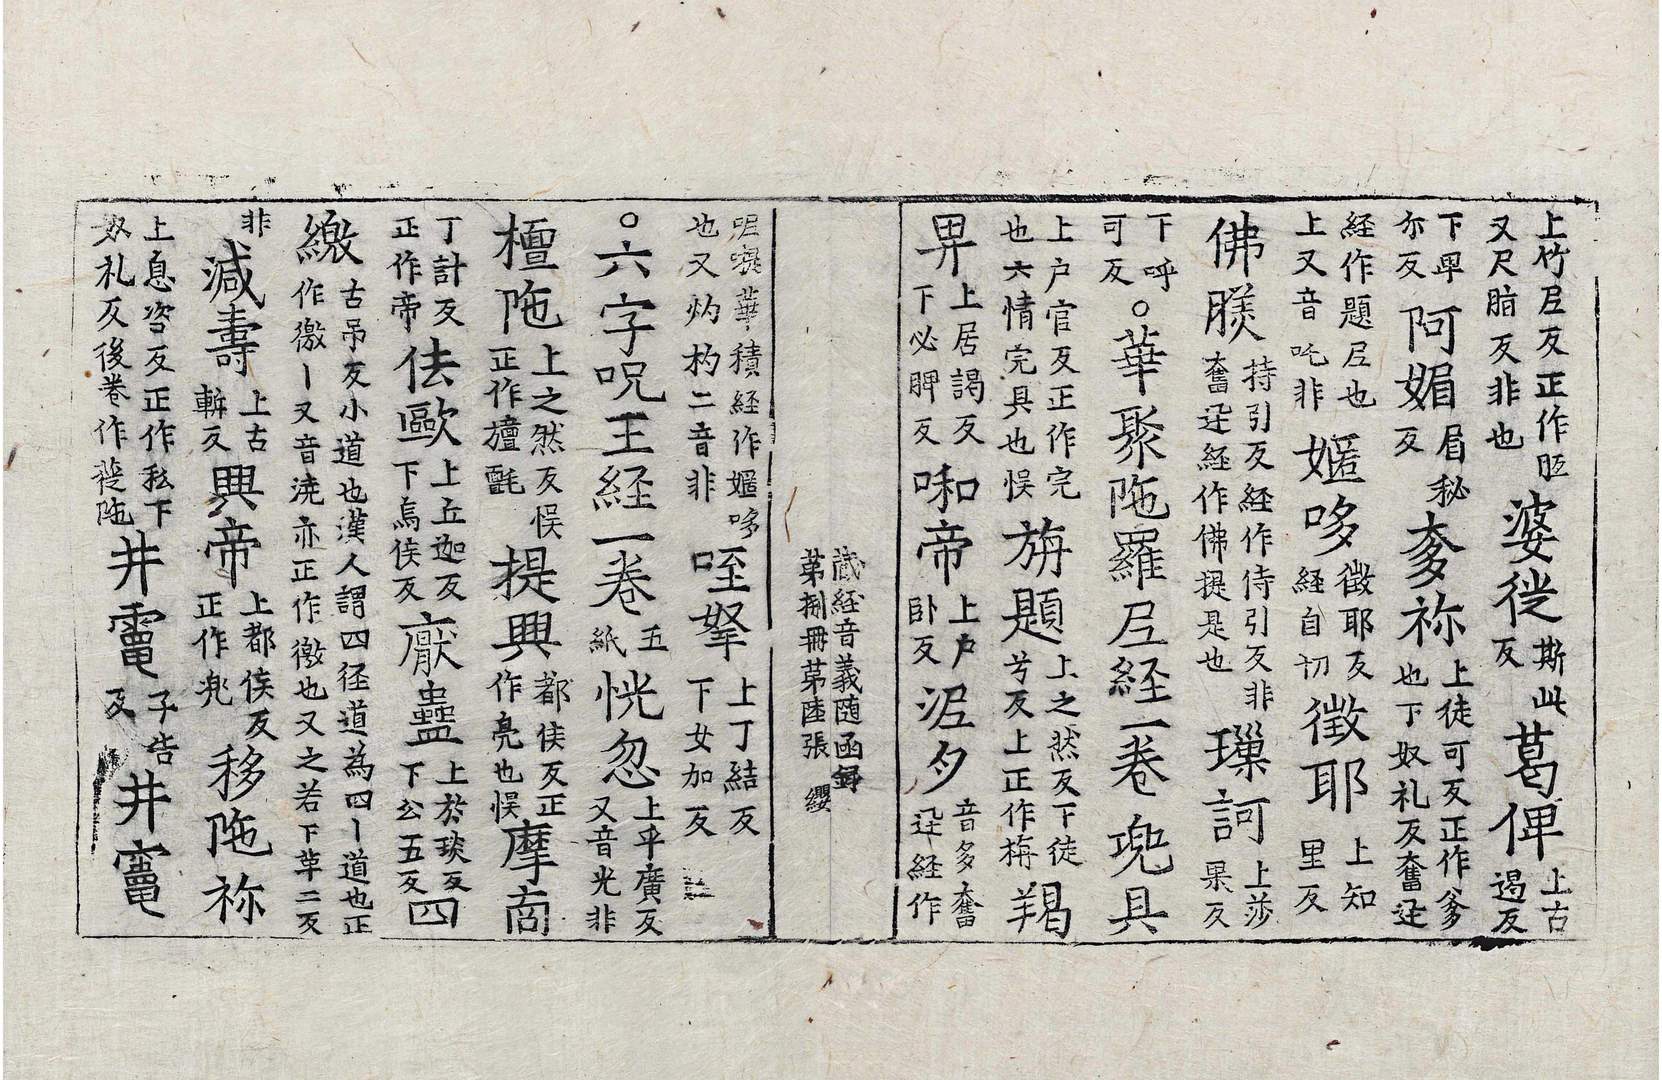 上竹尼反正作㫝又尺脂反非也婆徙斯此反葛俾上古遏反
下卑尒反阿媚眉秘反奓祢上徒可反正作爹也下奴礼反奮迅
経作題尼也上又音吒非嫟哆経自切徵耶反徵耶上知里反
佛䐜持引反経作侍引反非奮迅経作佛提是也璅訶上莎果反
下呼可反○華聚陁羅尼経一卷𠒋具
上户官反正作完也六情完具也悮旃題上之然反下徒兮反上正作栴羯
畀上居謁反下必脾反啝帝上户卧反泥夕音多奮迅経作
蔵経音義随函録
苐捌冊苐陸張　纓
呢㗨華積経作嫟哆也又灼杓二音非咥拏上丁結反下女加反
○六字呪王経一卷五紙恍忽上乎廣反又音光非
檀陁上之然反悮正作㫋氈提興都侯反正作亮也悮摩啇
丁計反正作帝佉歐上丘迦反下烏侯反猒蠱上於琰反下公五反四
繳古吊反小道也漢人謂四径道為四丨道也正作徼丨又音澆亦正作徼也又之若下革二反
非減壽上古斬反興帝上都侯反正作兠移陁祢
上息咨反正作私下奴礼反後卷作蓰陁井竈子告反井竈